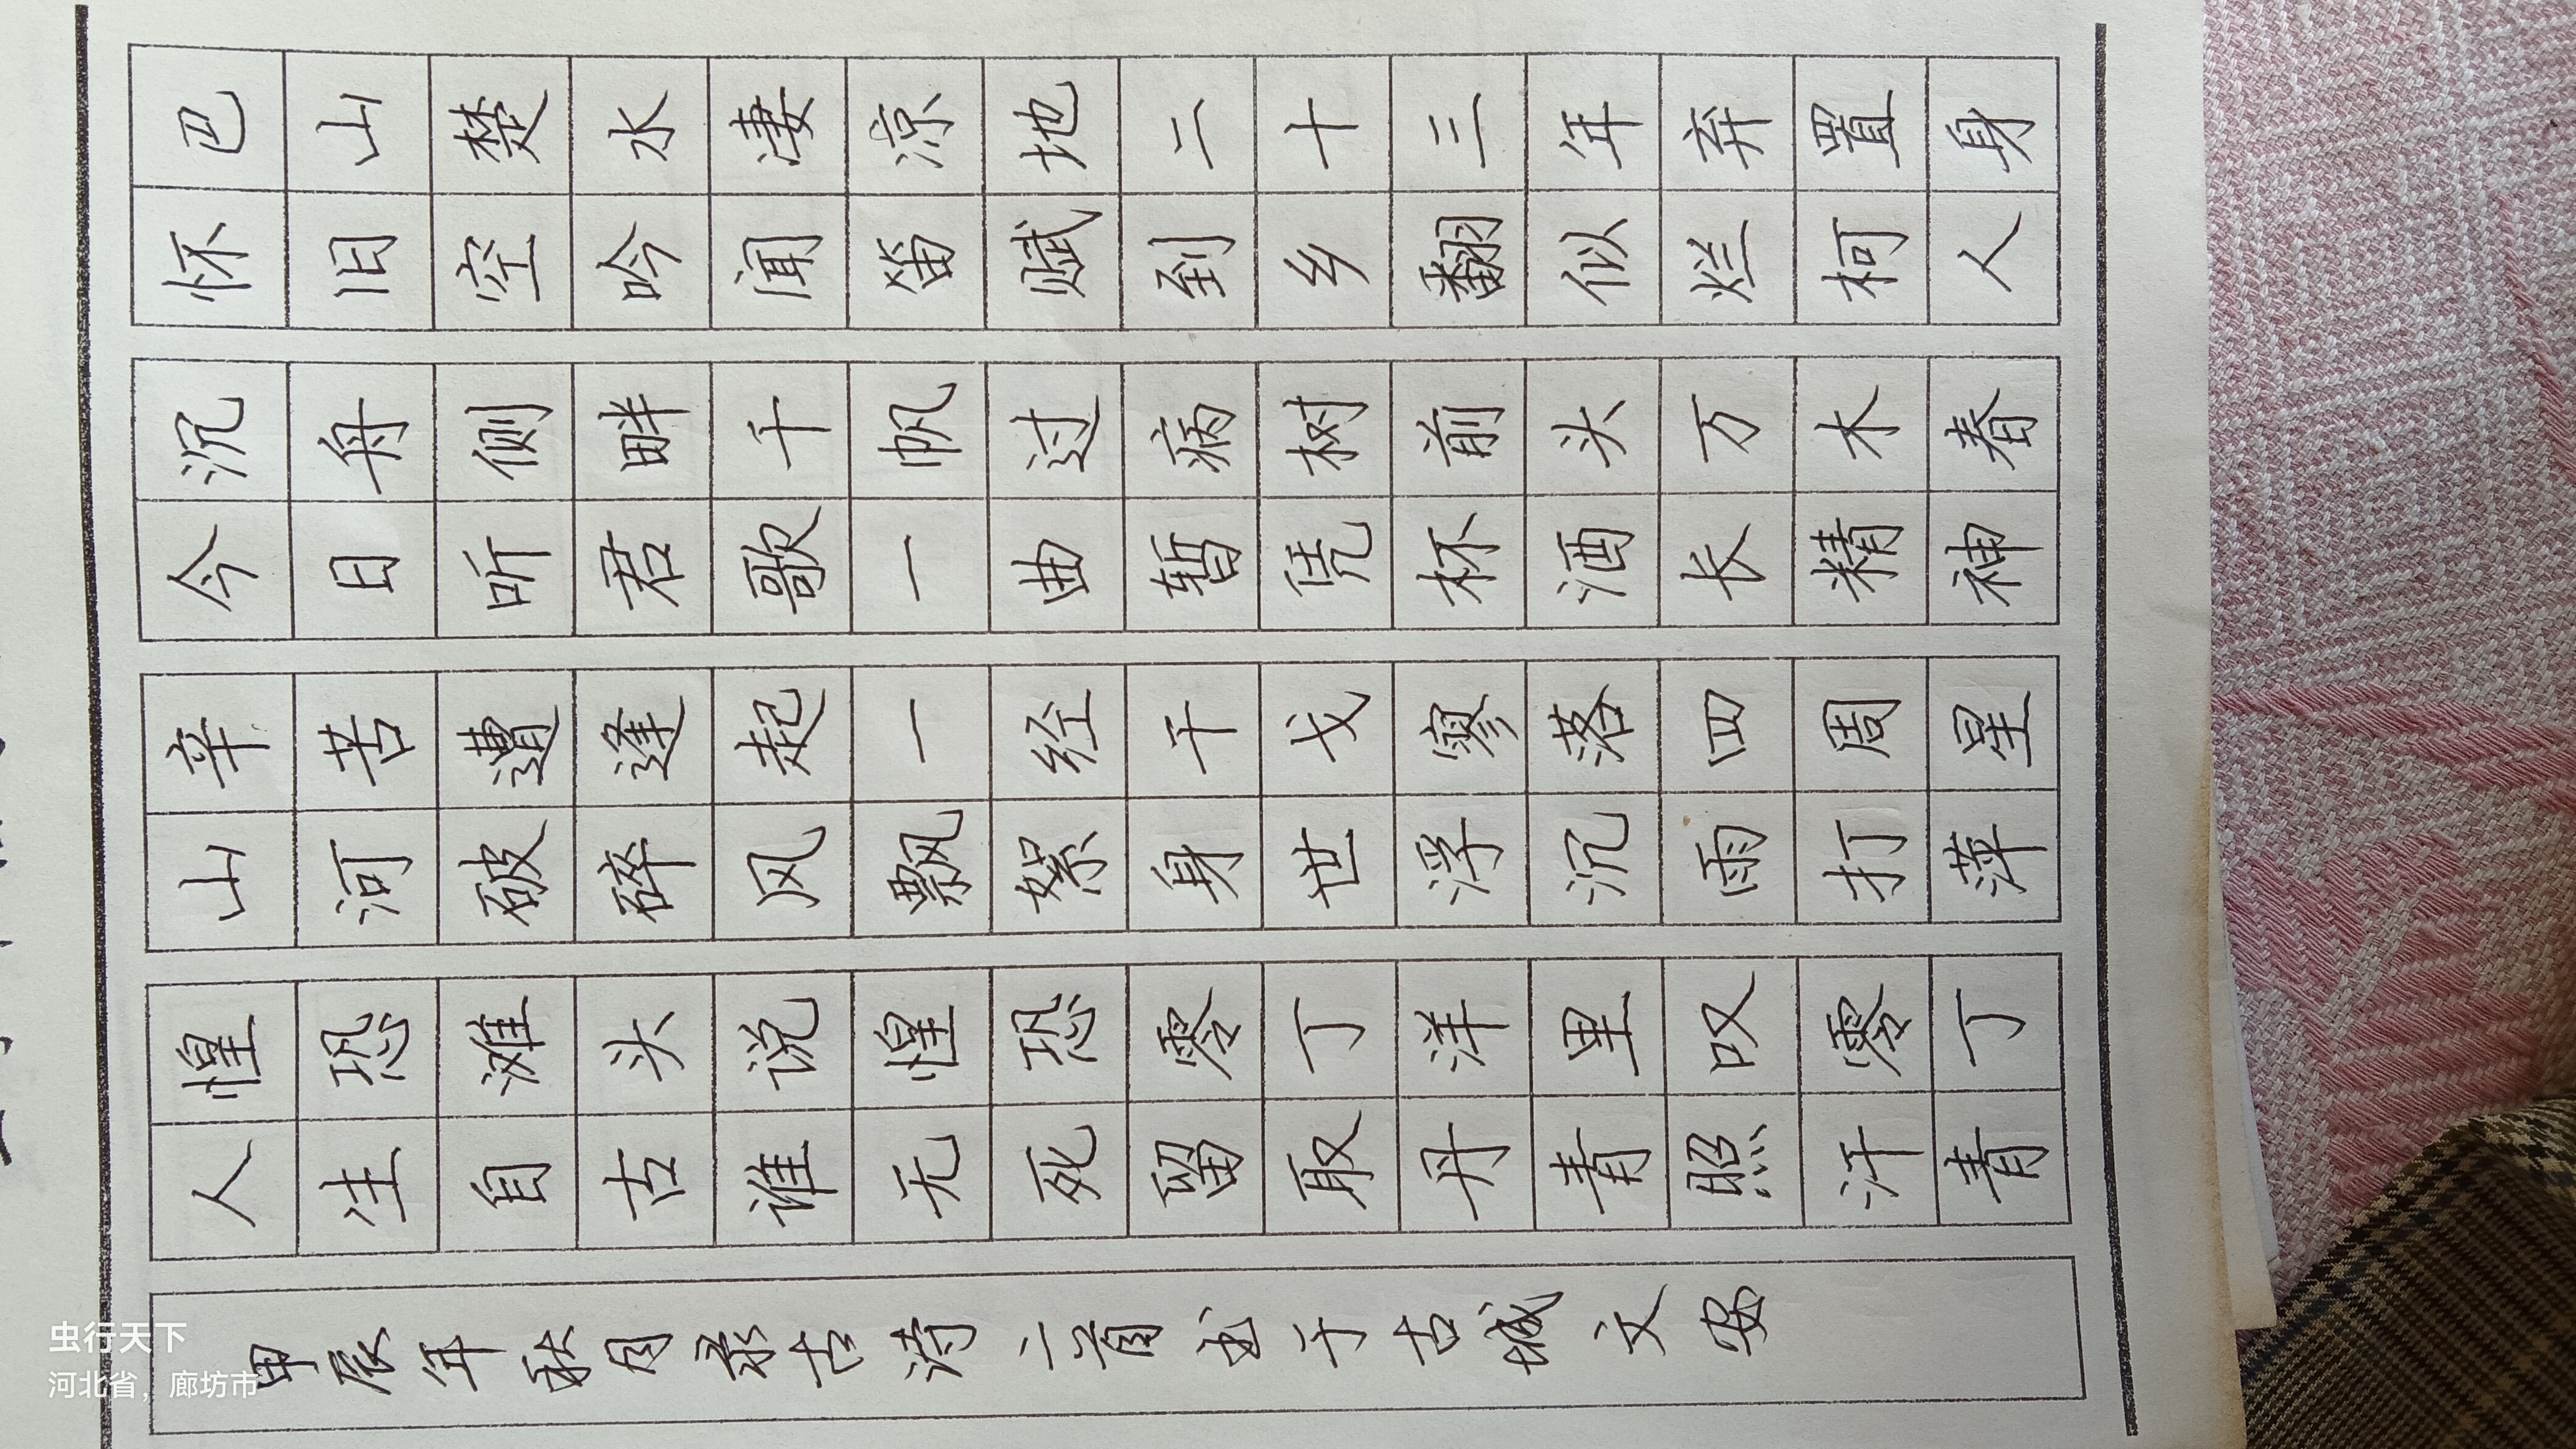 巴山楚水凄凉地二十三年弃置身
怀旧空吟闻笛赋到乡翻似烂柯人
沉舟侧畔千帆过病树前头万木春
今日听君歌一曲暂凭杯酒长精神
辛苦遭逢起一经干戈寥落四周星
山河破碎风飘絮身世浮沉雨打萍
惶恐滩头说惶恐零丁洋里叹零丁
人生自古谁无死留取丹青照汗青
甲辰年秋月录古诗二首书于古城文安
虫行天下
河北省，廊坊市